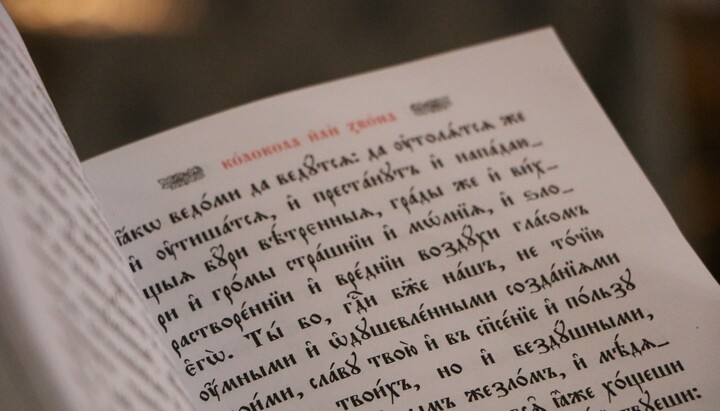 ко́локола и҆лѝ зво́на
ꙗ҆́кѡ ведо́ми да ведꙋ́тсѧ: да ᲂу҆толѧ́тсѧ же
и҆ ᲂу҆тиша́тсѧ, и҆ преста́нꙋтъ и҆ напа́дан_
щыѧ бꙋ́ри вѣ́тренныѧ, гра́ды же и҆ ви́х_
ри и҆ гро́мы стра́шнїи и҆ мѡ́лнїѧ, и҆ ѕло_
растворе́ннїи и҆ вре́днїи во́здꙋхи гла́сомъ
є҆гѡ̀. Ты́ бо, гдⷭ҇и бж҃е на́шъ, не то́чїю
ᲂу҆́мными и҆ ѡ҆дꙋшевле́нными созда́нїѧми
сла́вꙋ твою̀ и҆ въ сп҃се́нїе и҆ по́льзꙋ
твои́хъ, но и҆ бездꙋ́шными,
жезло́мъ, и҆ мѣ́дѧ_
ꙗ҆̀же хо́щеши